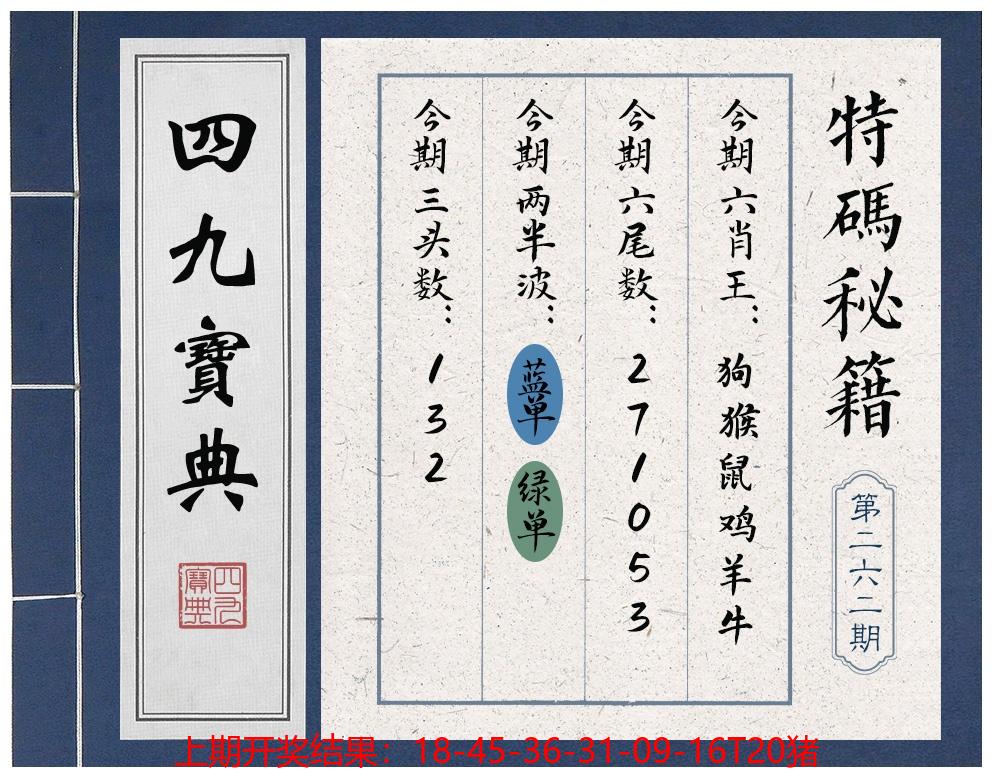 特碼秘籍
第二六二期
今期六肖王：狗猴鼠鸡羊牛
今期六尾数：271053
今期两半波：蓝单 绿单
今期三头数：132
四九寶典
四九寶典
上期开奖结果：18-45-36-31-09-16T20猪